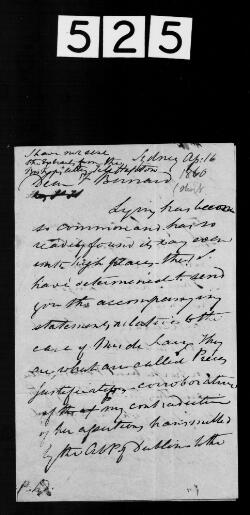 525
I have not sent
the extracts from the
Sydney Ap: 16
1860
Dear F Bernard
Lying has become
so common and has so
readily found its way even
unto high places that I
have determined to send
you the accompanying
statements relative to the
case of Mrs de Lacy. They
are what are called Pièces
justificatives corroborative
of the my contradiction
of her assertions transmitted
by the ABP of Dublin to the